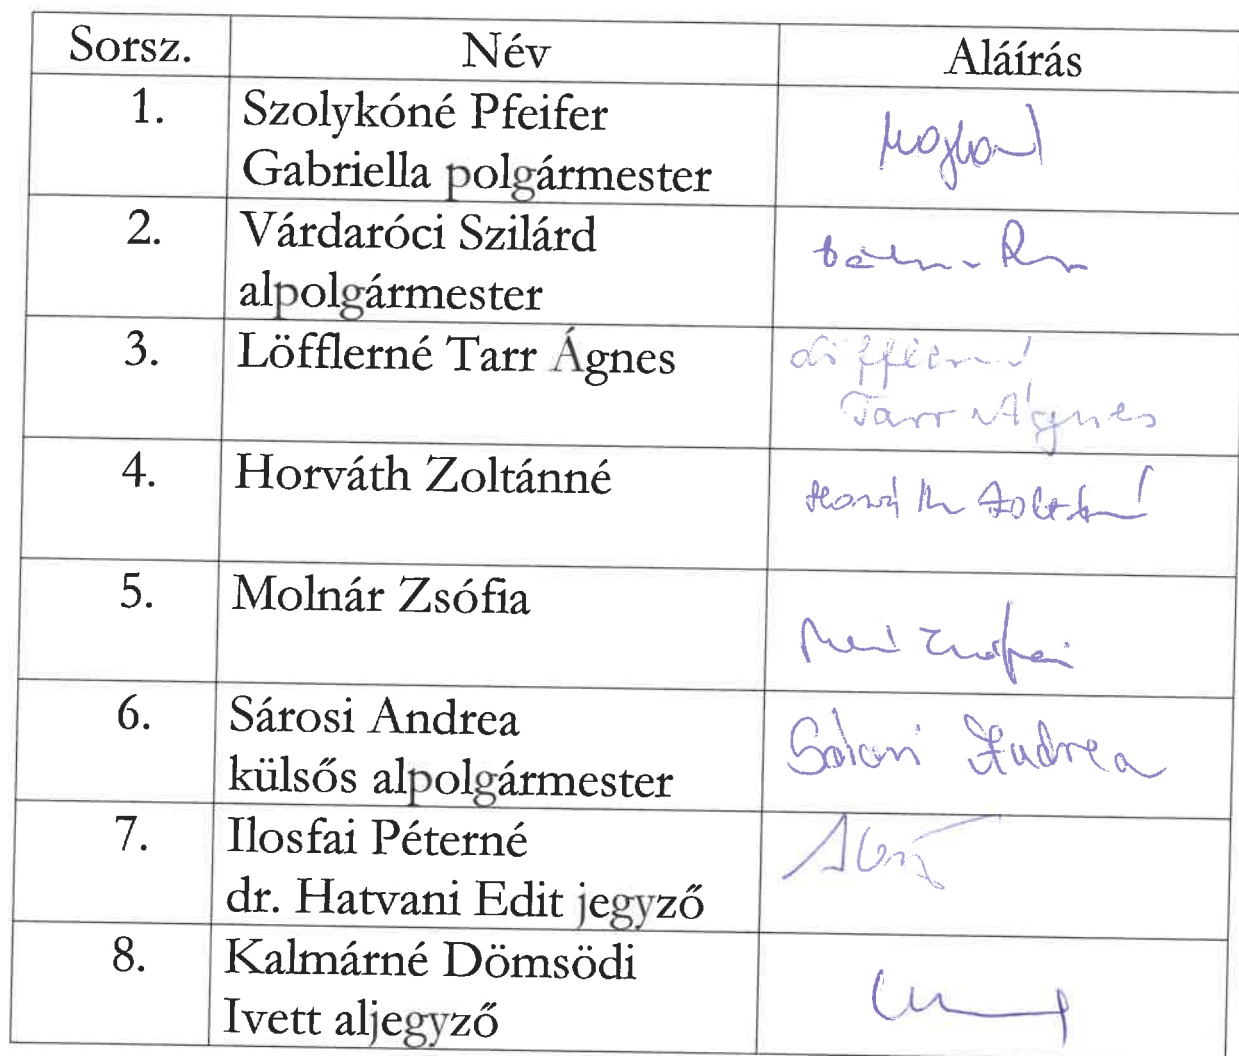 Sorsz. Név Aláírás
1. Szolykóné Pfeifer
Gabriella polgármester
2. Várdaróci Szilárd
alpolgármester
3. Löfflerné Tarr Ágnes
Löfflerné
Tarr Ágnes
4. Horváth Zoltánné
Horváth Zoltánné
5. Molnár Zsófia
6. Sárosi Andrea
Sárosi Andrea
külsős alpolgármester
7. Ilosfai Péterné
dr. Hatvani Edit jegyző
8. Kalmárné Dömsödi
Ivett aljegyző